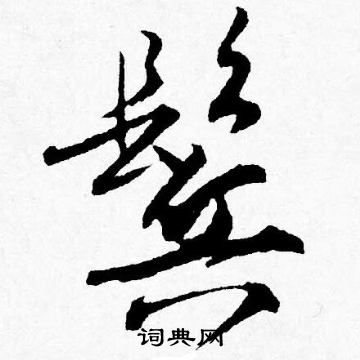 鬓
词典网